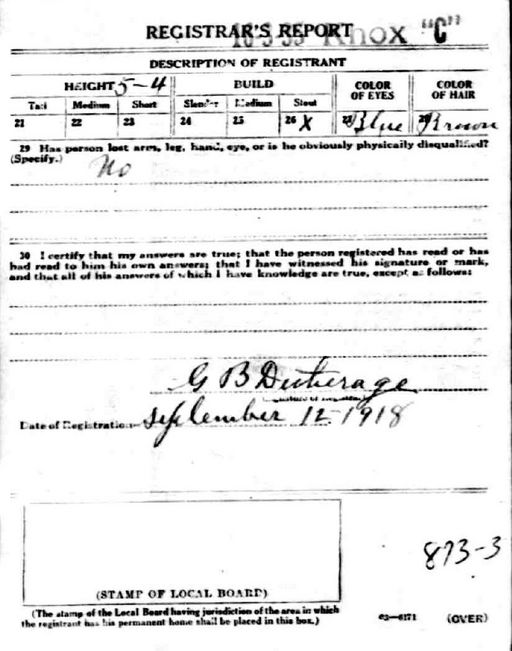 REGISTRAR'S REPORT
Knox "C"
DESCRIPTION OF REGISTRANT
HEIGHT 5-4 BUILD COLOR OF EYES COLOR OF HAIR
Tall Medium Short Slender Medium Stout
21 22 23 24 25 26 X Blue Brown
29 Has person lost arm, leg, hand, eye, or is he obviously physically disqualified?
(Specify.) No
30 I certify that my answers are true; that the person registered has read or has
had read to him his own answers; that I have witnessed his signature or mark,
and that all of his answers of which I have knowledge are true, except as follows:
G B
Date of Registration September 12-1918
873-3
(STAMP OF LOCAL BOARD)
(The stamp of the Local Board having jurisdiction of the area in which
the registrant has his permanent home shall be placed in this box.)
03-6171 (OVER)